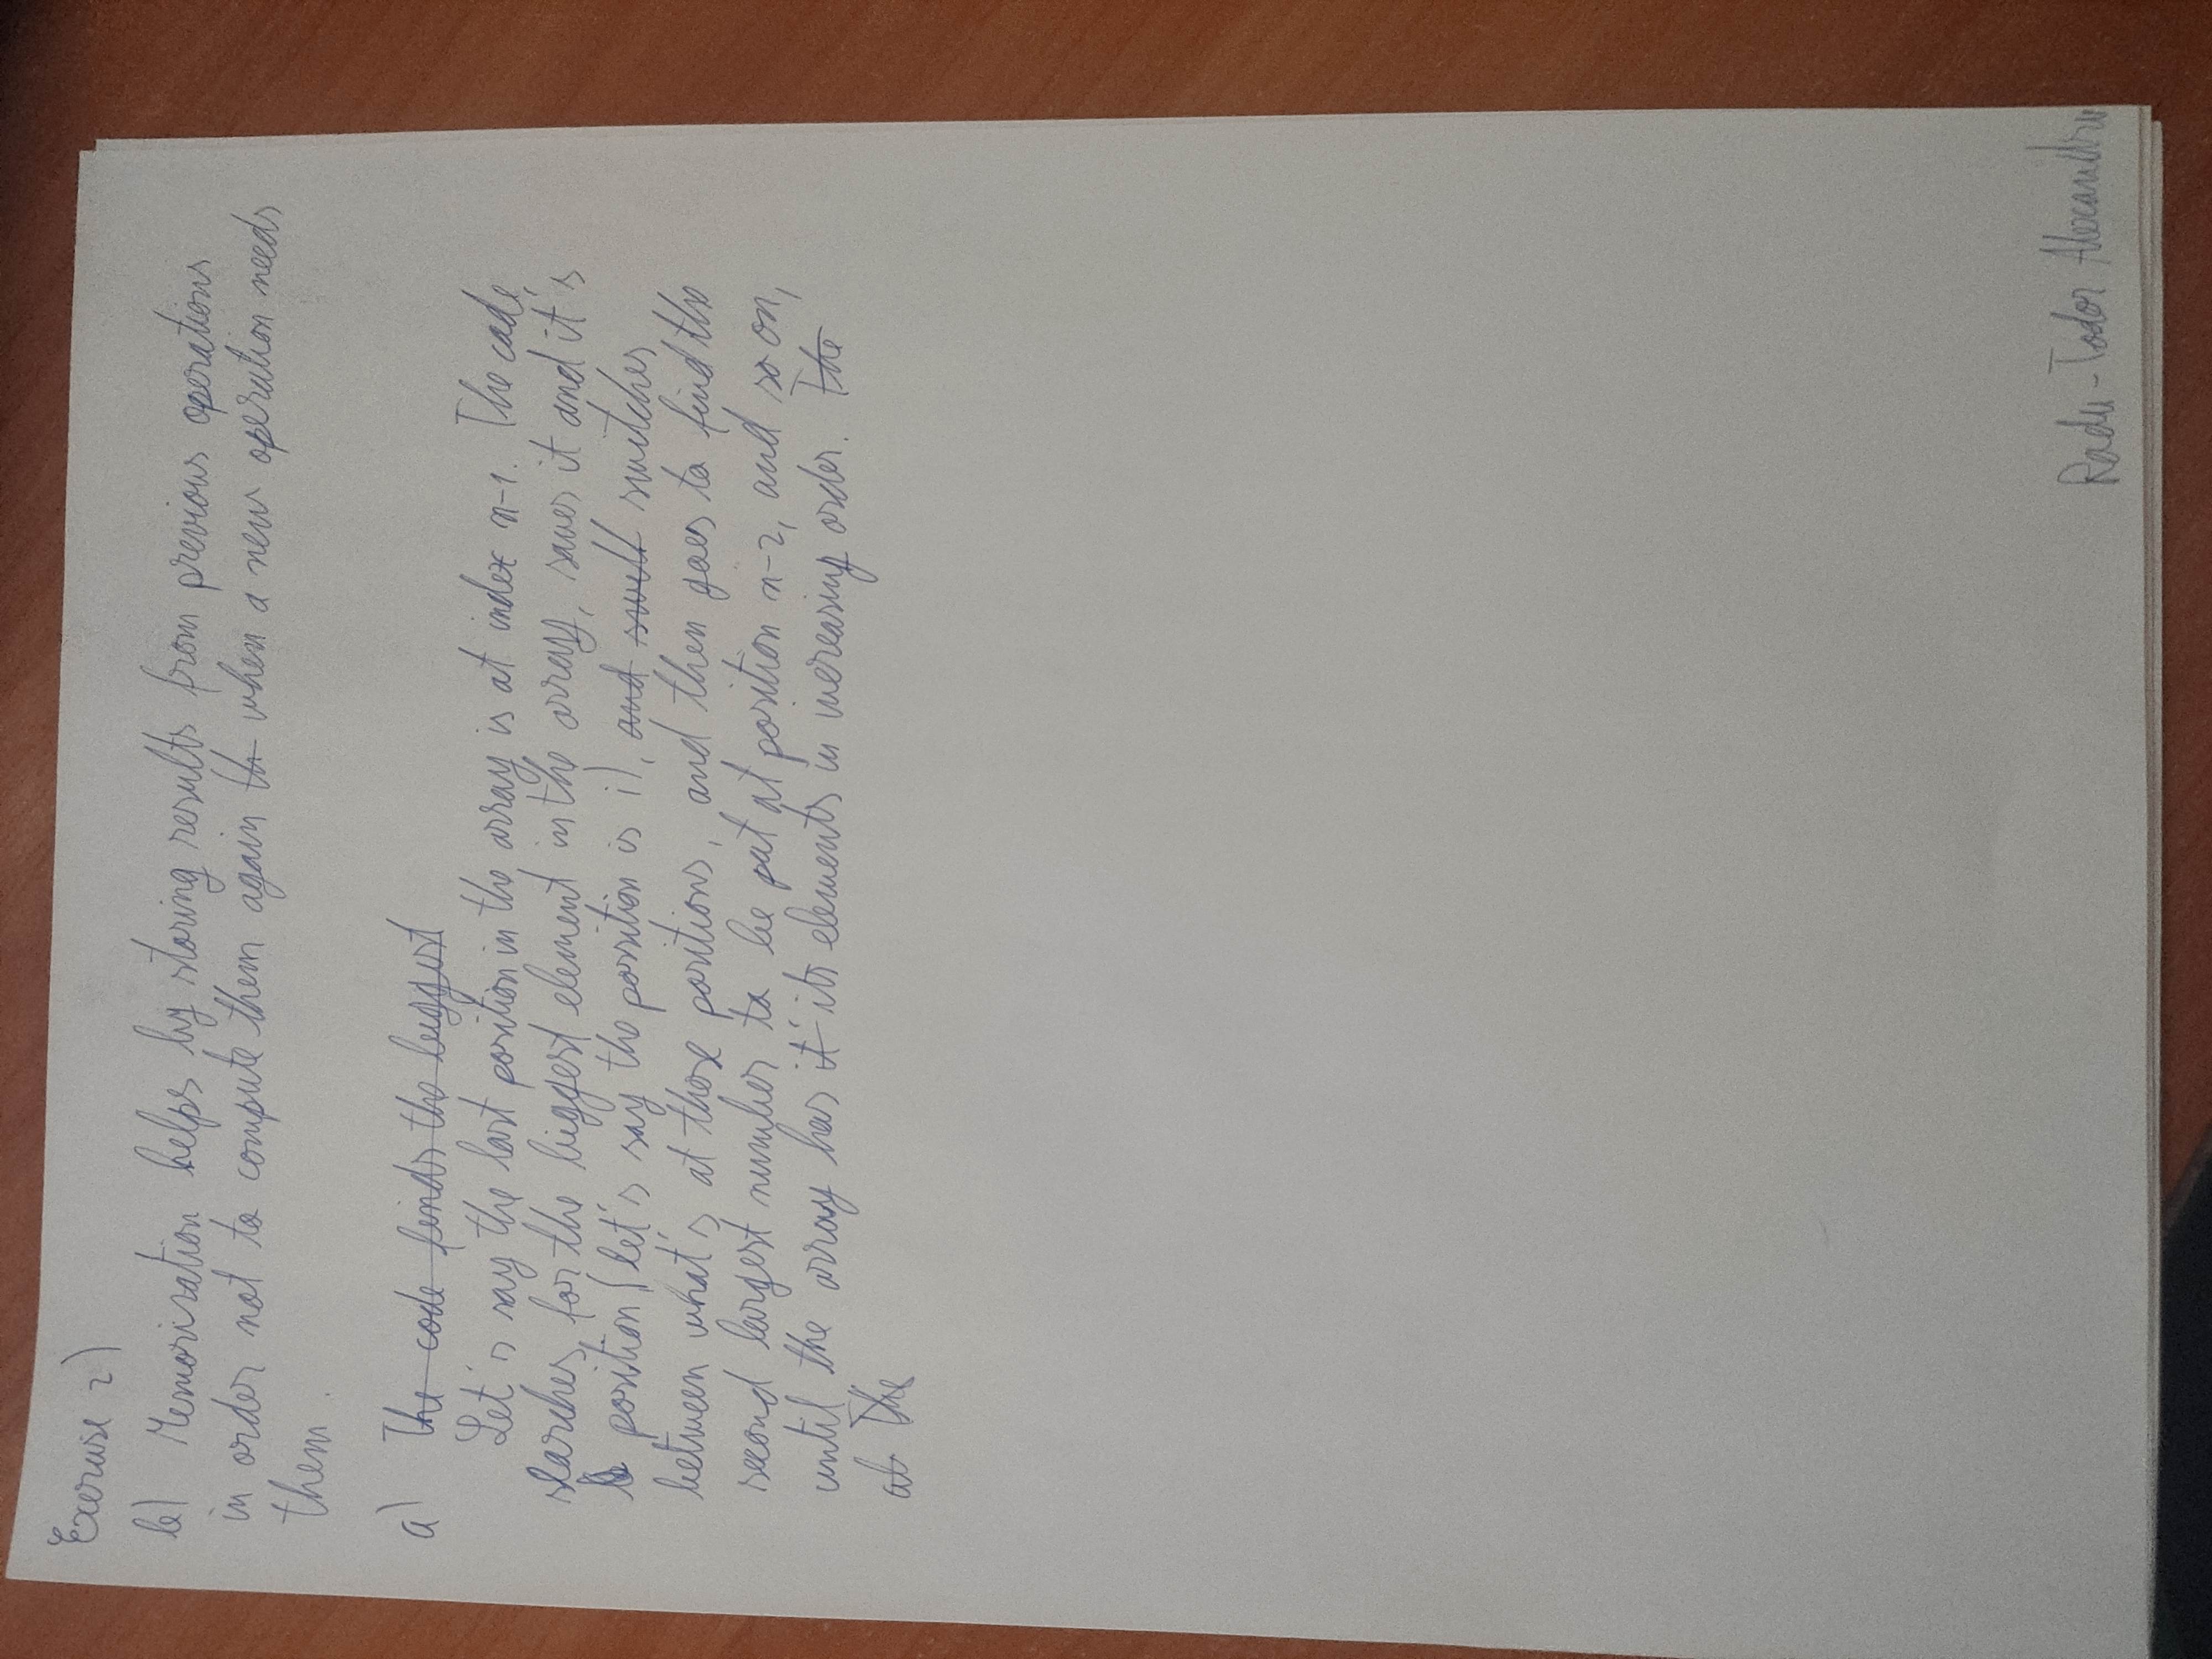 Exercise 2)
b) Memorisation helps by storing results from previous operations
in order not to compute them again th when a new operation needs
them.
a) The code finds the biggest
Let's say the last position in the array is at index n-1. The code
searches for the biggest element in the array, saves it and it's
position (let's say the position is i), and swell switches
between what's at those positions, and then goes to find the
second largest number to be put at position n-2, and so on,
until the array has it' its elements in increasing order. The
at The
Radu-Todor Alexandru